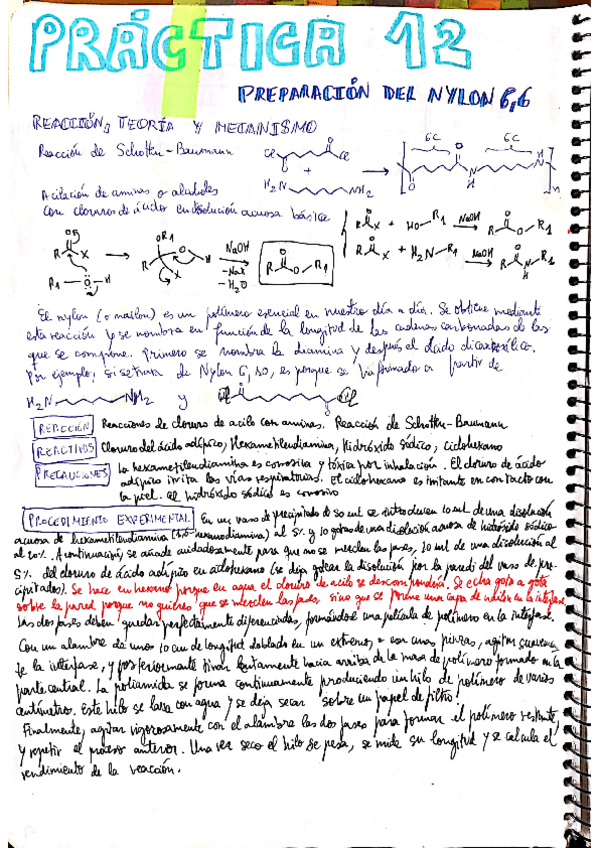 PRÁCTICA 12
PREPARACIÓN DEL NYLON 6,6
REACCIÓN, TEORÍA Y MECANISMO
Reacción de Schotten-Baumann
Acilación de aminas o alcoholes
con cloruros de ácido en disolución acuosa básica
6C 6C
NaOH
NaOH
NaOH
-NaX
-H2O
El nylon (o nailon) es un polímero esencial en nuestro día a día. Se obtiene mediante
esta reacción y se nombra en función de la longitud de las cadenas carbonadas de las
que se compone. Primero se nombra la diamina y después el ácido dicarboxílico.
Por ejemplo, si se trata de Nylon 6,10, es porque se ha formado a partir de
H2N NH2 y
REACCIÓN Reacciones de cloruro de acilo con aminas. Reacción de Schotten-Baumann
REACTIVOS Cloruro del ácido adípico, Hexametilendiamina, Hidróxido sódico, Ciclohexano
PRECAUCIONES La hexametilendiamina es corrosiva y tóxica por inhalación. El cloruro de ácido
adípico irrita las vías respiratorias. El ciclohexano es irritante en contacto con
la piel. El hidróxido sódico es corrosivo
PROCEDIMIENTO EXPERIMENTAL En un vaso de precipitado de 50 ml se introducen 10 ml de una disolución
acuosa de hexametilendiamina (1,6-hexanodiamina) al 5% y 10 gotas de una disolución acuosa de hidróxido sódico
al 20%. A continuación, se añade cuidadosamente para que no se mezclen las fases, 10 ml de una disolución al
5% del cloruro de ácido adípico en ciclohexano (se deja gotear la disolución por la pared del vaso de pre-
cipitados). Se hace en hexano porque en agua el cloruro de acilo se descompondría. Se echa gota a gota
sobre la pared porque no quieres que se mezclen las fases, sino que se forme una capa de nailon en la interfase
Las dos fases deben quedar perfectamente diferenciadas, formándose una película de polímero en la interfase.
Con un alambre de unos 10 cm de longitud doblado en un extremo, o con unas pinzas, agitar suavemen-
te la interfase, y posteriormente tirar lentamente hacia arriba de la masa de polímero formado en la
parte central. La poliamida se forma continuamente produciendo un hilo de polímero de varios
centímetros. Este hilo se lava con agua y se deja secar sobre un papel de filtro.
Finalmente, agitar vigorosamente con el alambre las dos fases para formar el polímero restante,
y repetir el proceso anterior. Una vez seco el hilo se pesa, se mide su longitud y se calcula el
rendimiento de la reacción.